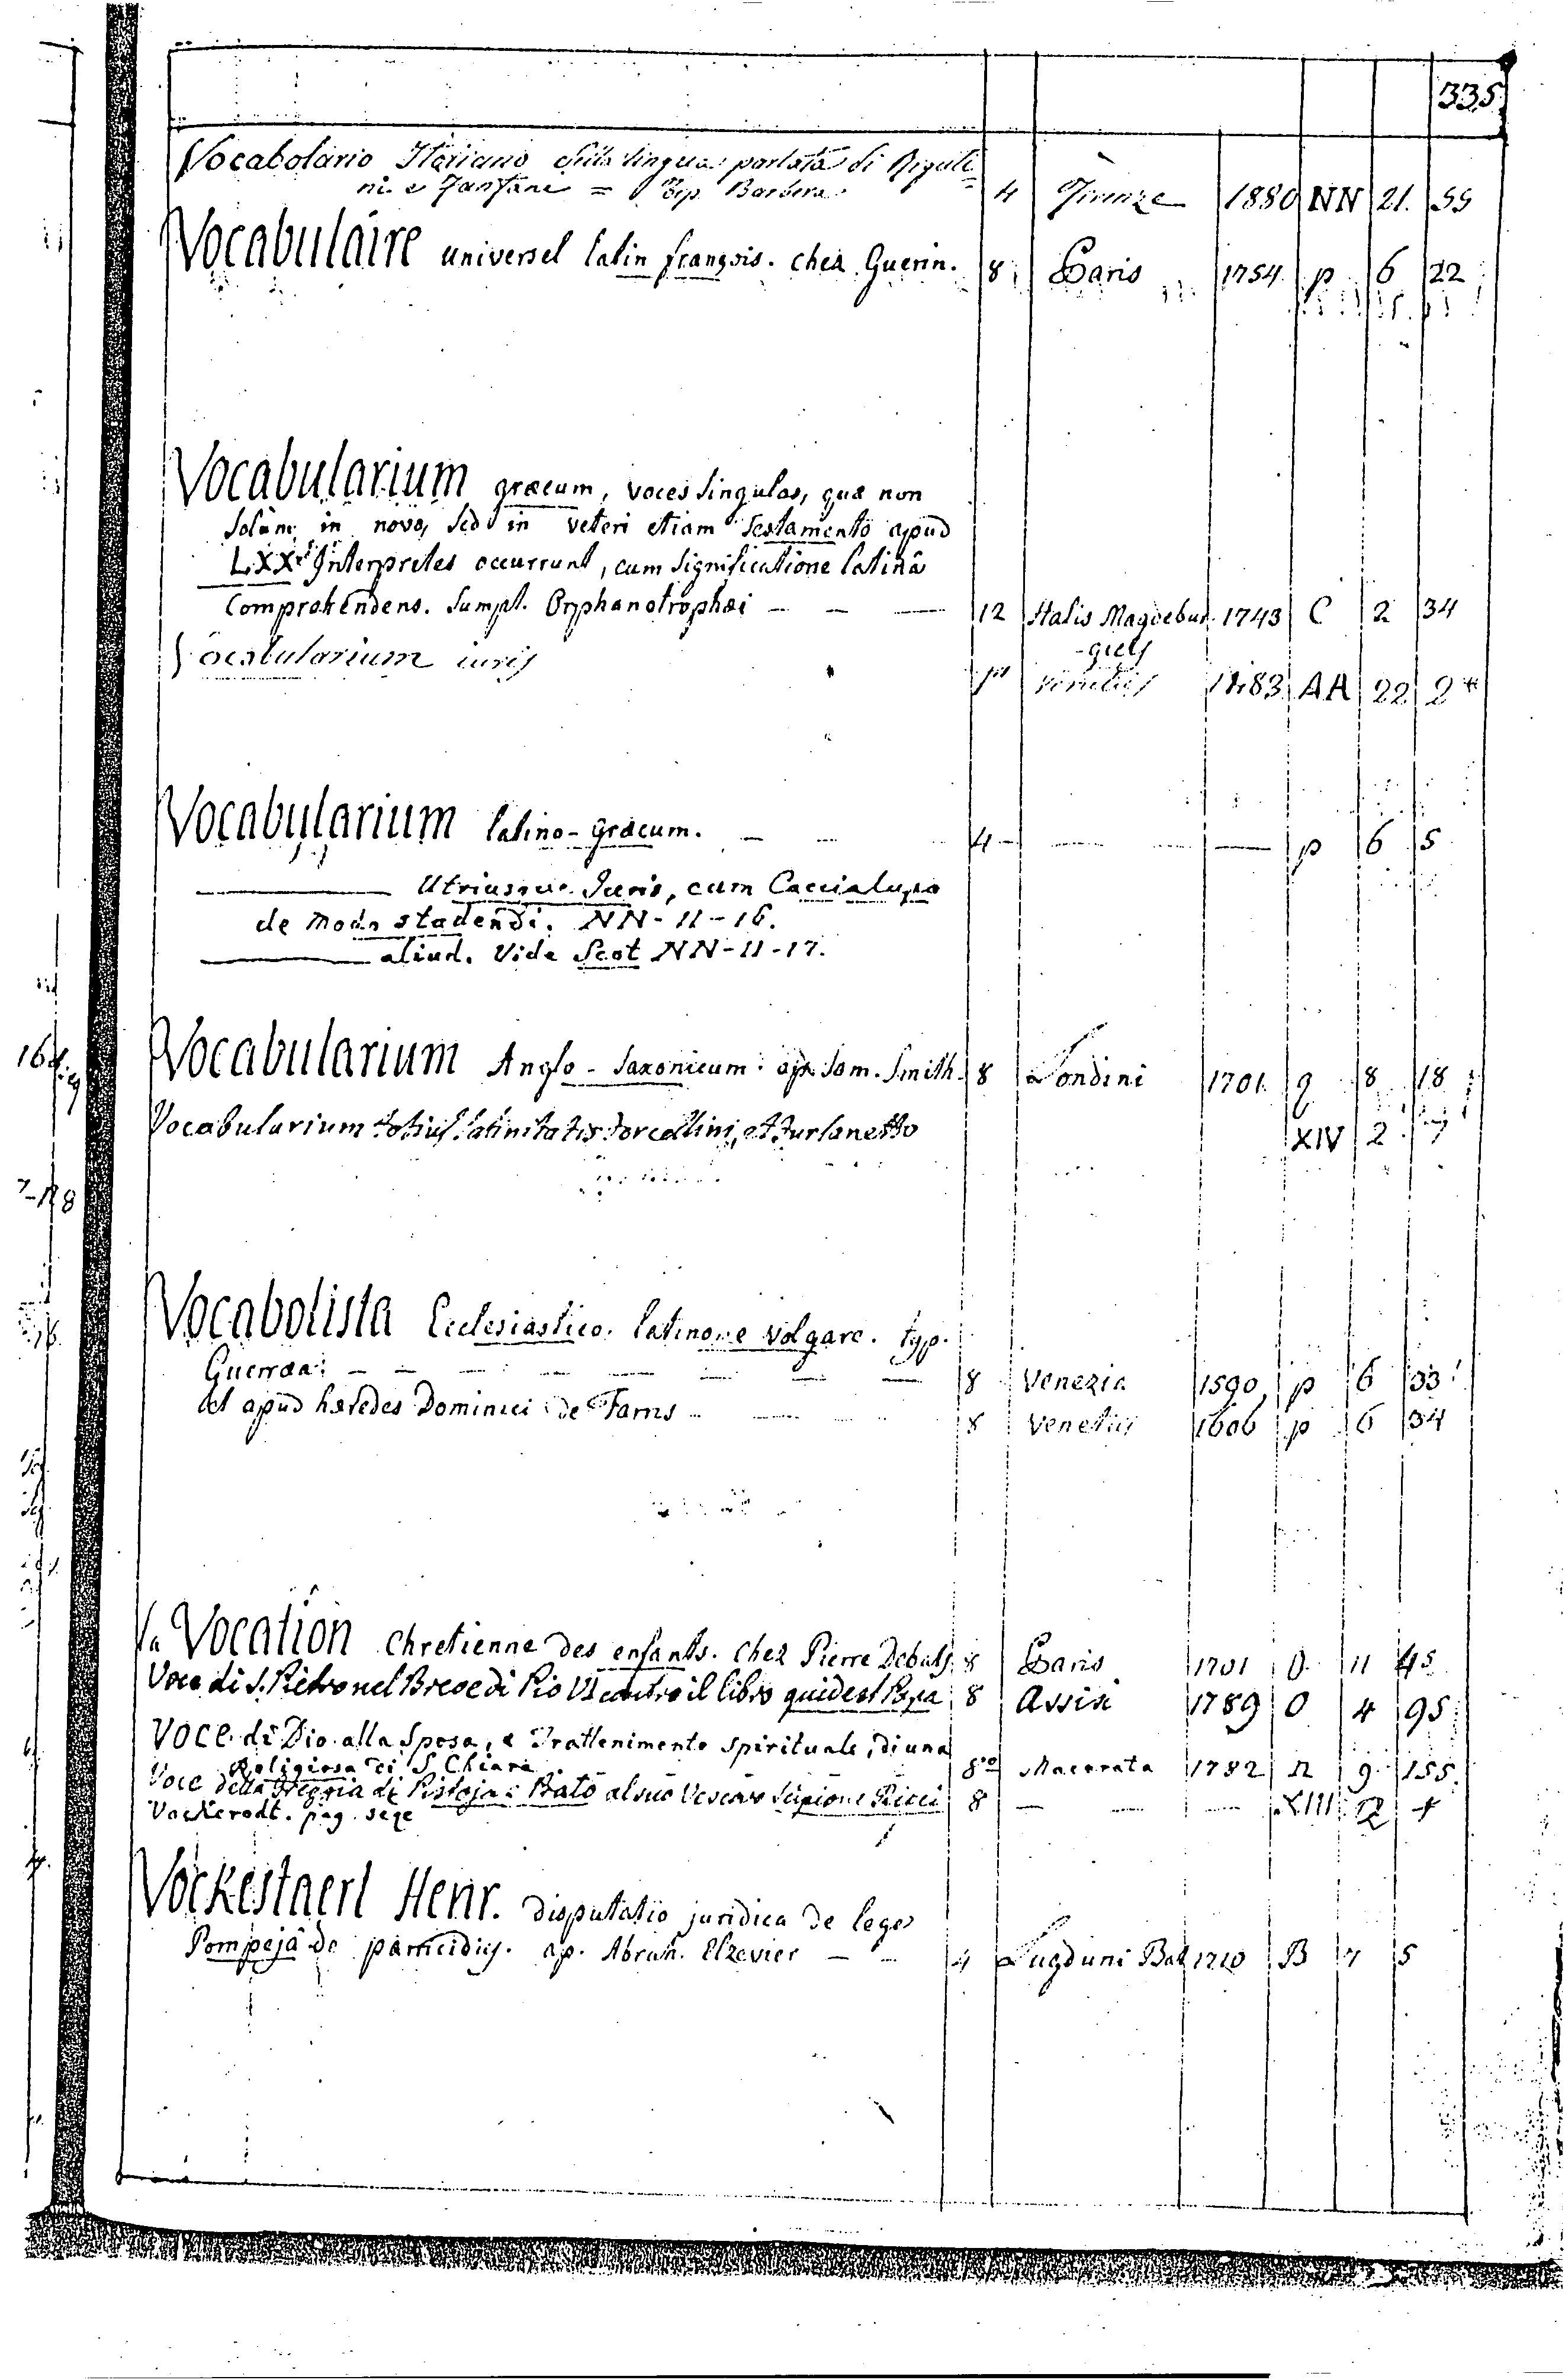 335.
Vocabolario Italiano della lingua parlata di Riguti=
ni e Fanfani = Tip. Barbera 4 Firenze 1880 NN 21. 55
Vocabulaire universel latin françois. chez Guerin. 8 Paris 1754 p 6 22
Vocabularium græcum, voces singulas, quæ non
solùm in novo, sed in veteri etiam Testamento apud
LXX Interpretes occurrunt, cum significatione latinâ
comprehendens. Sumpt. Orphanotrophæi — — — 12 Halis Magdebur 1743 C 2 34
-gicis
Vocabularium iuris Venetiis 1483 AA 22 2*
Vocabularium latino-græcum. — — 4 — — — — p 6 5
——— Utriusque Juris, cum Caccialupo
de modo studendi. NN-11-16.
——— aliud. Vide Scot NN-11-17.
Vocabularium Anglo-Saxonicum: ap. Sam. Smith. 8 Londini 1701 q 8 18
Vocabularium totius latinitatis Forcellini, et Furlanetto XIV 2
Vocabolista Ecclesiastico. latino, e volgare. typ.
Guerræa: — — — — — — — — 8 Venezia 1590 p 6 33
et apud hæredes Dominici de Farris — — 8 Venetiis 1606 p 6 34
la Vocation chretienne des enfants. chez Pierre Debats 8 Paris 1701 O 11 45
Voce di S. Pietro nel Breve di Pio VI contro il libro quid est Papa 8 Assisi 1789 O 4 95
Voce di Dio alla Sposa, e Trattenimento spirituale, di una
Religiosa di S. Chiara 8vo Macerata 1782 n 9 155.
Voce della Greggia di Pistoja e Prato al suo Vescovo Scipione Ricci 8 — — — XIII 12 +
Vockerodt. pag. seqe
Vockestaert Henr. disputatio juridica de lege
Pompejâ de parricidiis. ap. Abrah. Elzevier — — 4 Lugduni Bat 1710 B 7 5